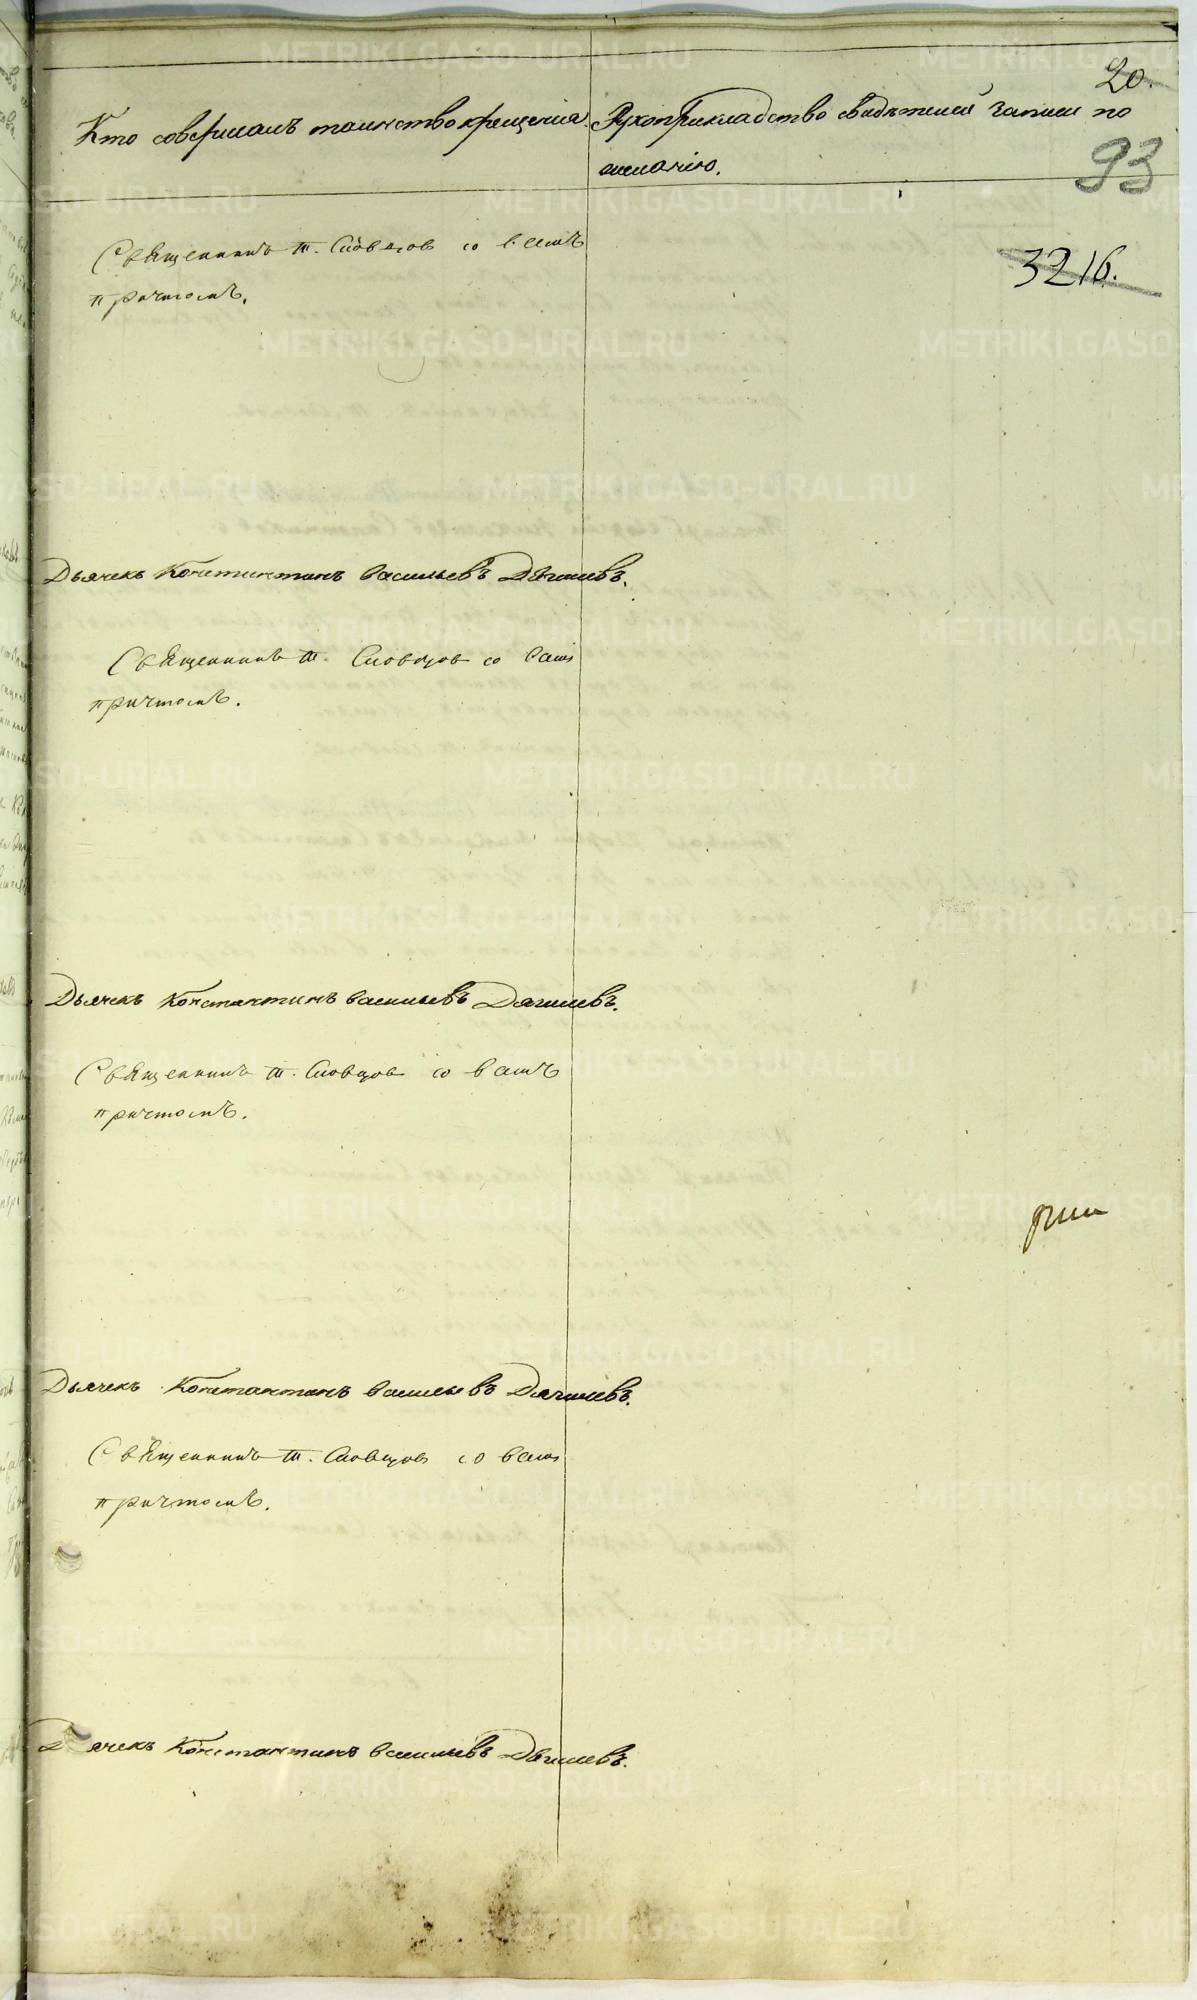 20.
Кто совершалъ таинство крещенія. Рукоприкладство свидѣтелей записи по
желанію.
93
3216.
Священникъ Т. Словцов со всемъ
причтомъ.
Дьячекъ Константинъ Васильевъ Дягилевъ.
Священникъ Т. Словцов со всем
причтомъ.
Дьячекъ Константинъ Васильевъ Дягилевъ.
Священникъ Т. Словцов со всемъ
причтомъ.
Дьячекъ Константинъ Васильевъ Дягилевъ.
Священникъ Т. Словцов со всем
причтомъ.
Дьячекъ Константинъ Васильевъ Дягилевъ.
METRIKI.GASO-URAL.RU